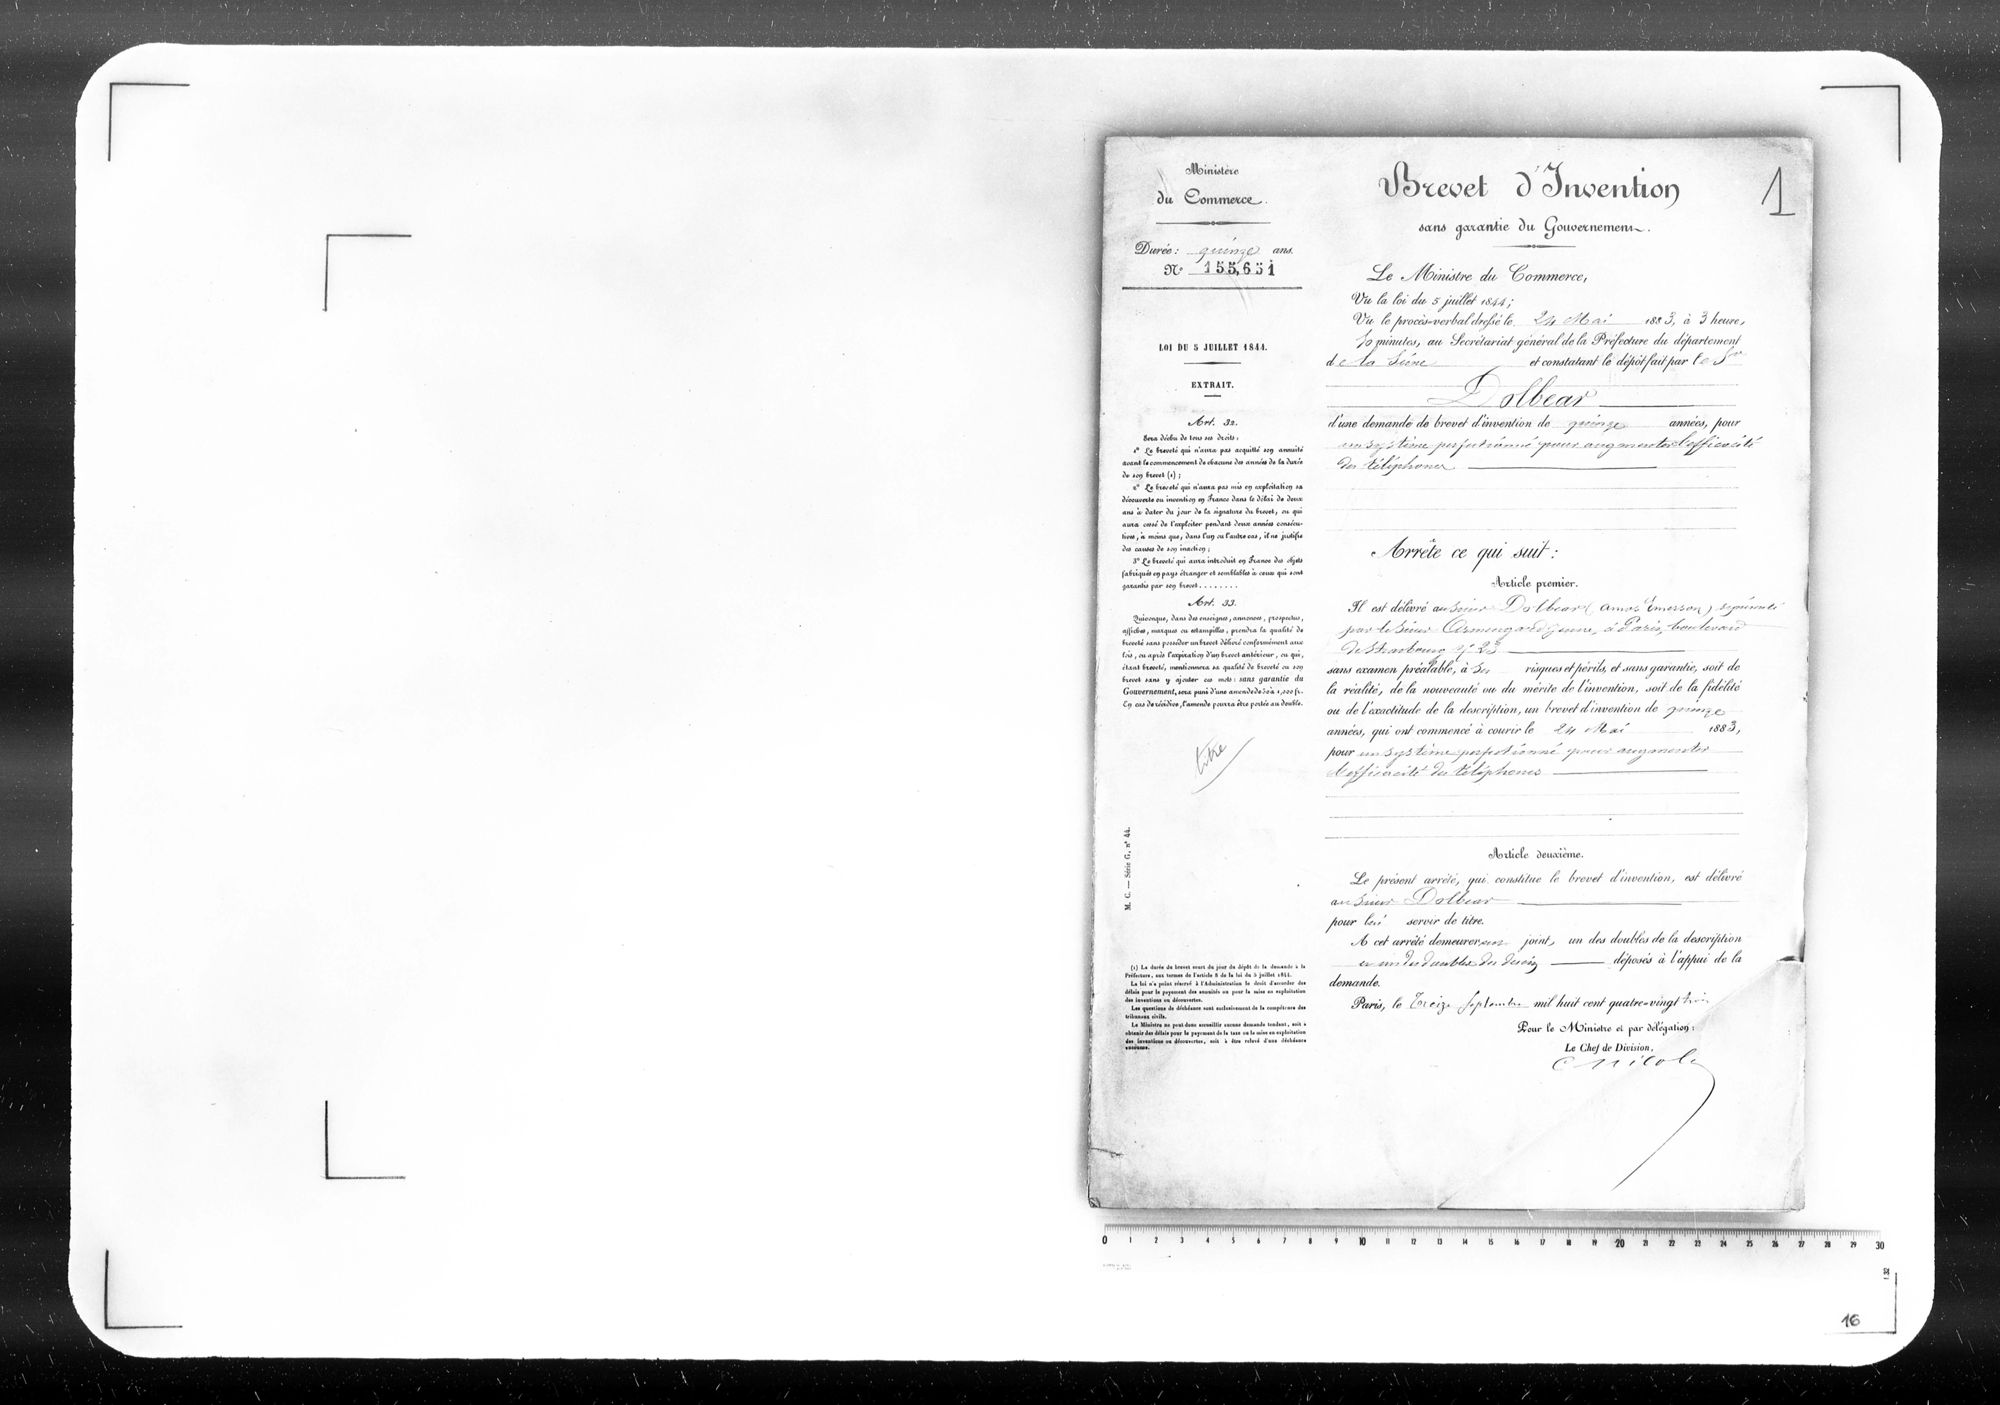 Ministère
du Commerce.
Durée: quinze ans.
N° 155,651
LOI DU 5 JUILLET 1844.
EXTRAIT.
Art. 32.
Sera déchu de tous ses droits:
1° Le breveté qui n'aura pas acquitté son annuité
avant le commencement de chacune des années de la durée
de son brevet (1);
2° Le breveté qui n'aura pas mis en exploitation sa
découverte ou invention en France dans le délai de deux
ans à dater du jour de la signature du brevet, ou qui
aura cessé de l'exploiter pendant deux années consécu-
tives, à moins que, dans l'un ou l'autre cas, il ne justifie
des causes de son inaction;
3° Le breveté qui aura introduit en France des objets
fabriqués en pays étranger et semblables à ceux qui sont
garantis par son brevet........
Art. 33.
Quiconque, dans des enseignes, annonces, prospectus,
affiches, marques ou estampilles, prendra la qualité de
breveté sans posséder un brevet délivré conformément aux
lois, ou après l'expiration d'un brevet antérieur, ou qui,
étant breveté, mentionnera sa qualité de breveté ou son
brevet sans y ajouter ces mots: sans garantie du
Gouvernement, sera puni d'une amende de 50 à 1,000 fr.
En cas de récidive, l'amende pourra être portée au double.
titre
M. C. — Série G, n° 44.
(1) La durée du brevet court du jour du dépôt de la demande à la
Préfecture, aux termes de l'article 8 de la loi du 5 juillet 1844.
La loi n'a point réservé à l'Administration le droit d'accorder des
délais pour le payement des annuités ou pour la mise en exploitation
des inventions ou découvertes.
Les questions de déchéance sont exclusivement de la compétence des
tribunaux civils.
Le Ministre ne peut donc accueillir aucune demande tendant, soit à
obtenir des délais pour le payement de la taxe ou la mise en exploitation
des inventions ou découvertes, soit à être relevé d'une déchéance
encourue.
Brevet d'Invention
1
sans garantie du Gouvernement.
Le Ministre du Commerce,
Vu la loi du 5 juillet 1844;
Vu le procès-verbal dressé le 24 Mai 1883, à 3 heure,
minutes, au Secrétariat général de la Préfecture du département
de la Seine et constatant le dépôt fait par le Sr
Dolbear
d'une demande de brevet d'invention de quinze années, pour
un système perfectionné pour augmenter l'efficacité
des téléphones
Arrête ce qui suit:
Article premier.
Il est délivré au sieur Dolbear (Amos Emerson) représenté
par le sieur Armengaud jeune, à Paris, boulevard
de Strasbourg n° 23
sans examen préalable, à ses risques et périls, et sans garantie, soit de
la réalité, de la nouveauté ou du mérite de l'invention, soit de la fidélité
ou de l'exactitude de la description, un brevet d'invention de quinze
années, qui ont commencé à courir le 24 Mai 1883,
pour un système perfectionné pour augmenter
l'efficacité des téléphones
Article deuxième.
Le présent arrêté, qui constitue le brevet d'invention, est délivré
au sieur Dolbear
pour lui servir de titre.
A cet arrêté demeureront joints un des doubles de la description
et un des doubles des dessins déposés à l'appui de la
demande.
Paris, le treize Septembre mil huit cent quatre-vingt trois
Pour le Ministre et par délégation:
Le Chef de Division,
0 1 2 3 4 5 6 7 8 9 10 11 12 13 14 15 16 17 18 19 20 21 22 23 24 25 26 27 28 29 30
16